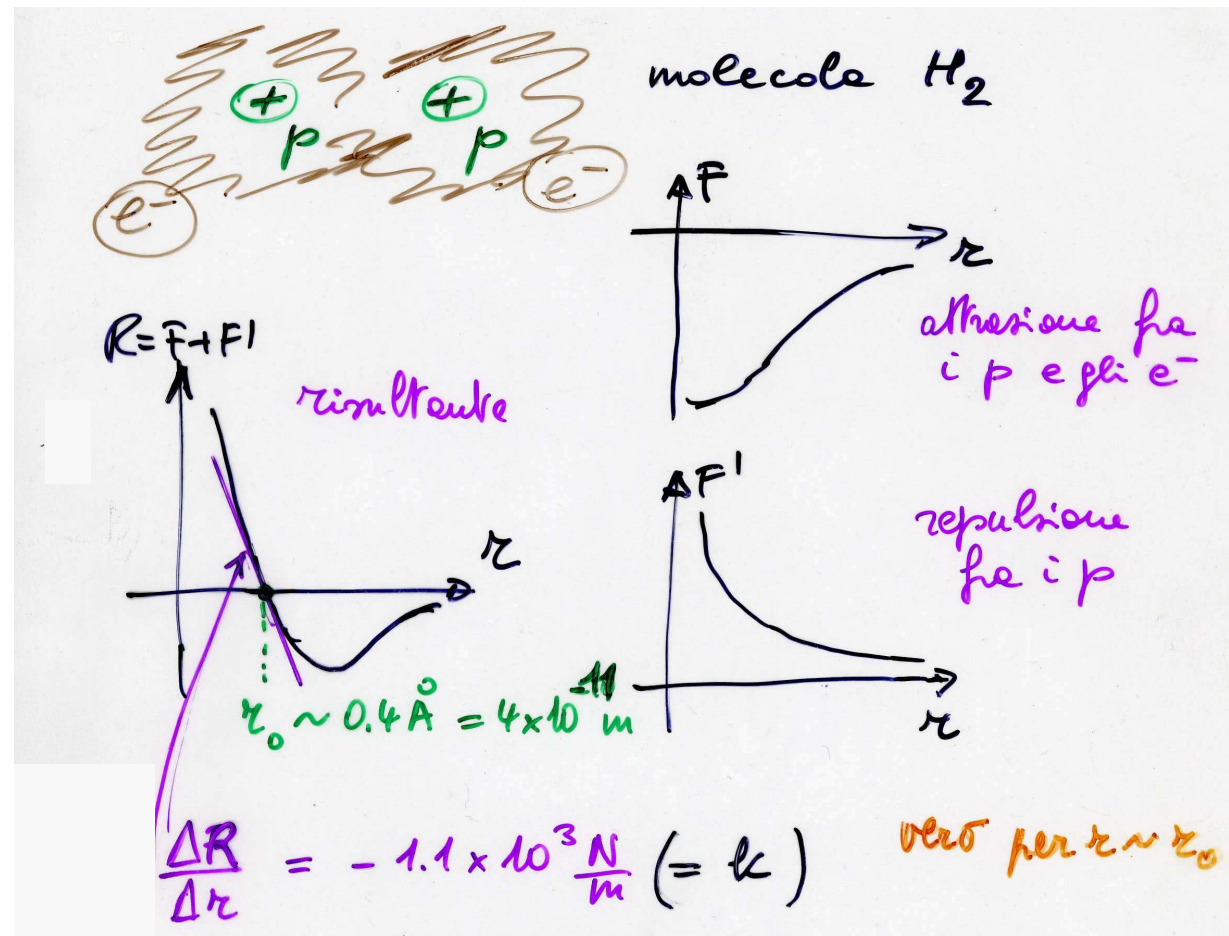 molecola H₂
+ +
p p
e⁻ e⁻
F
r
attrazione fra
i p e gli e⁻
R = F + F'
risultante
r
F'
repulsione
fra i p
r
r₀ ~ 0.4 Å = 4 × 10⁻¹¹ m
ΔR/Δr = - 1.1 × 10³ N/m (= k)
vero per r ~ r₀